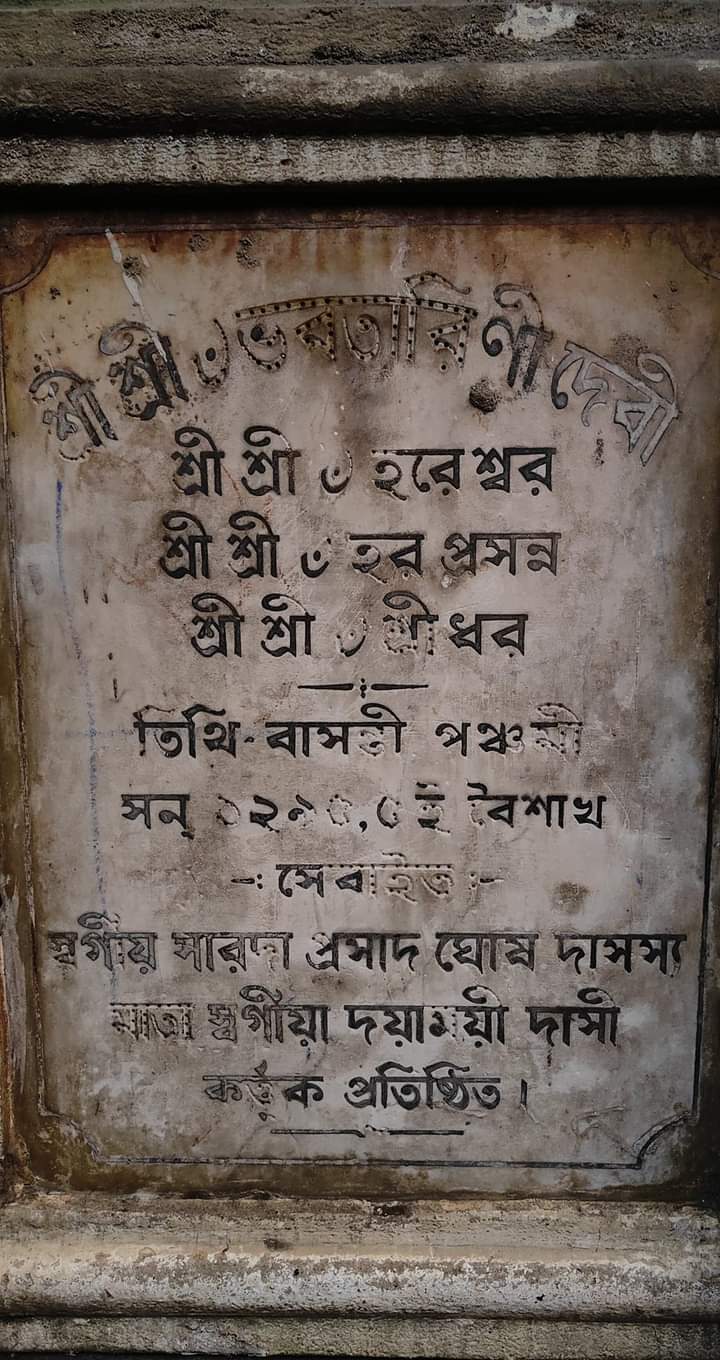 শ্রী শ্রী ৺ ভবতারিণী দেবী
শ্রী শ্রী ৺ হরেশ্বর
শ্রী শ্রী ৺ হর প্রসন্ন
শ্রী শ্রী ৺ শ্রীধর
তিথি-বাসন্তী পঞ্চমী
সন্ ৫ই বৈশাখ
-: সেবাইত :-
স্বর্গীয় সারদা প্রসাদ ঘোষ দাসস্য
মাতা স্বর্গীয়া দয়াময়ী দাসী
কর্ত্তৃক প্রতিষ্ঠিত।